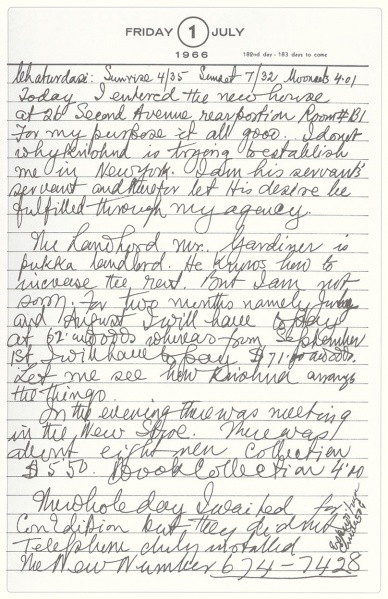 FRIDAY 1 JULY
1966 182nd day - 183 days to come
Chaturdasi: Sunrise 4/35 Sunset 7/32 Moonsets 4.01
Today I entered the new house
at 26 Second Avenue, rear portion Room # B1
For my purpose it all good. I do not
why Krishna is trying to establish
me in New York. I am his servants'
servant and therefor let His desire be
fulfilled through my agency.
The Landlord Mr. Gardiner is
pukka landlord. He knows how to
increase the rent. But I am not
sorry. For two months namely July
and August I will have to pay
at 62 whereas from September
1st I will have to pay $71.00
Let me see how Krishna arrange
the things.
In the evening there was meeting
in the New Store. There was
about eight men Collection
$5.50. Book Collection 4.00
The whole day I waited for
Con Edition but they did not
Telephone duly installed
The New Number 674-7428